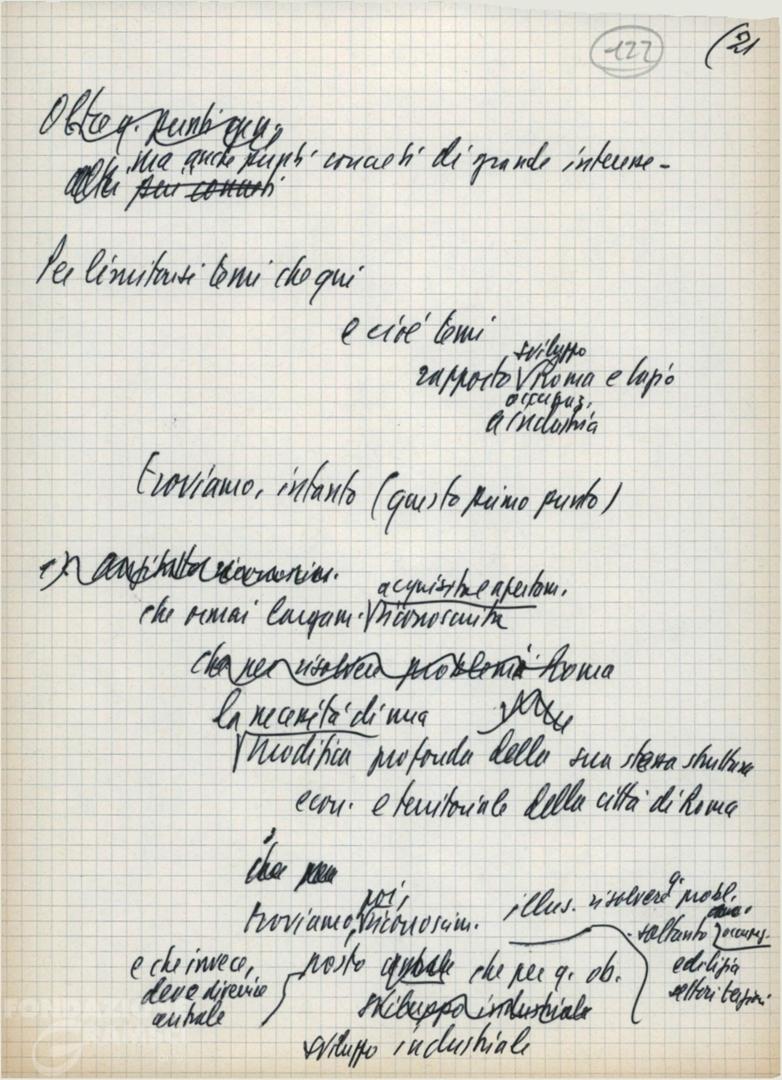 122
(21
Oltre q. punti qui,
ma anche punti concreti di grande interesse -
altri
Per limitarsi temi che qui
e cioè temi
sviluppo
rapporto Roma e Lazio
occupaz.
a industria
troviamo, intanto (questo primo punto)
1)
acquisita apertam.
che ormai largam. riconosciuta
che per risolvere problemi Roma
la necessità di una
modifica profonda della sua stessa struttura
econ. e territoriale della città di Roma
che
poi,
troviamo, riconoscim.
illus. risolvere q. probl.
soltanto occupaz.
edilizia
settori terziari
e che invece,
deve divenire
centrale
posto che per q. ob.
sviluppo industriale
sviluppo industriale